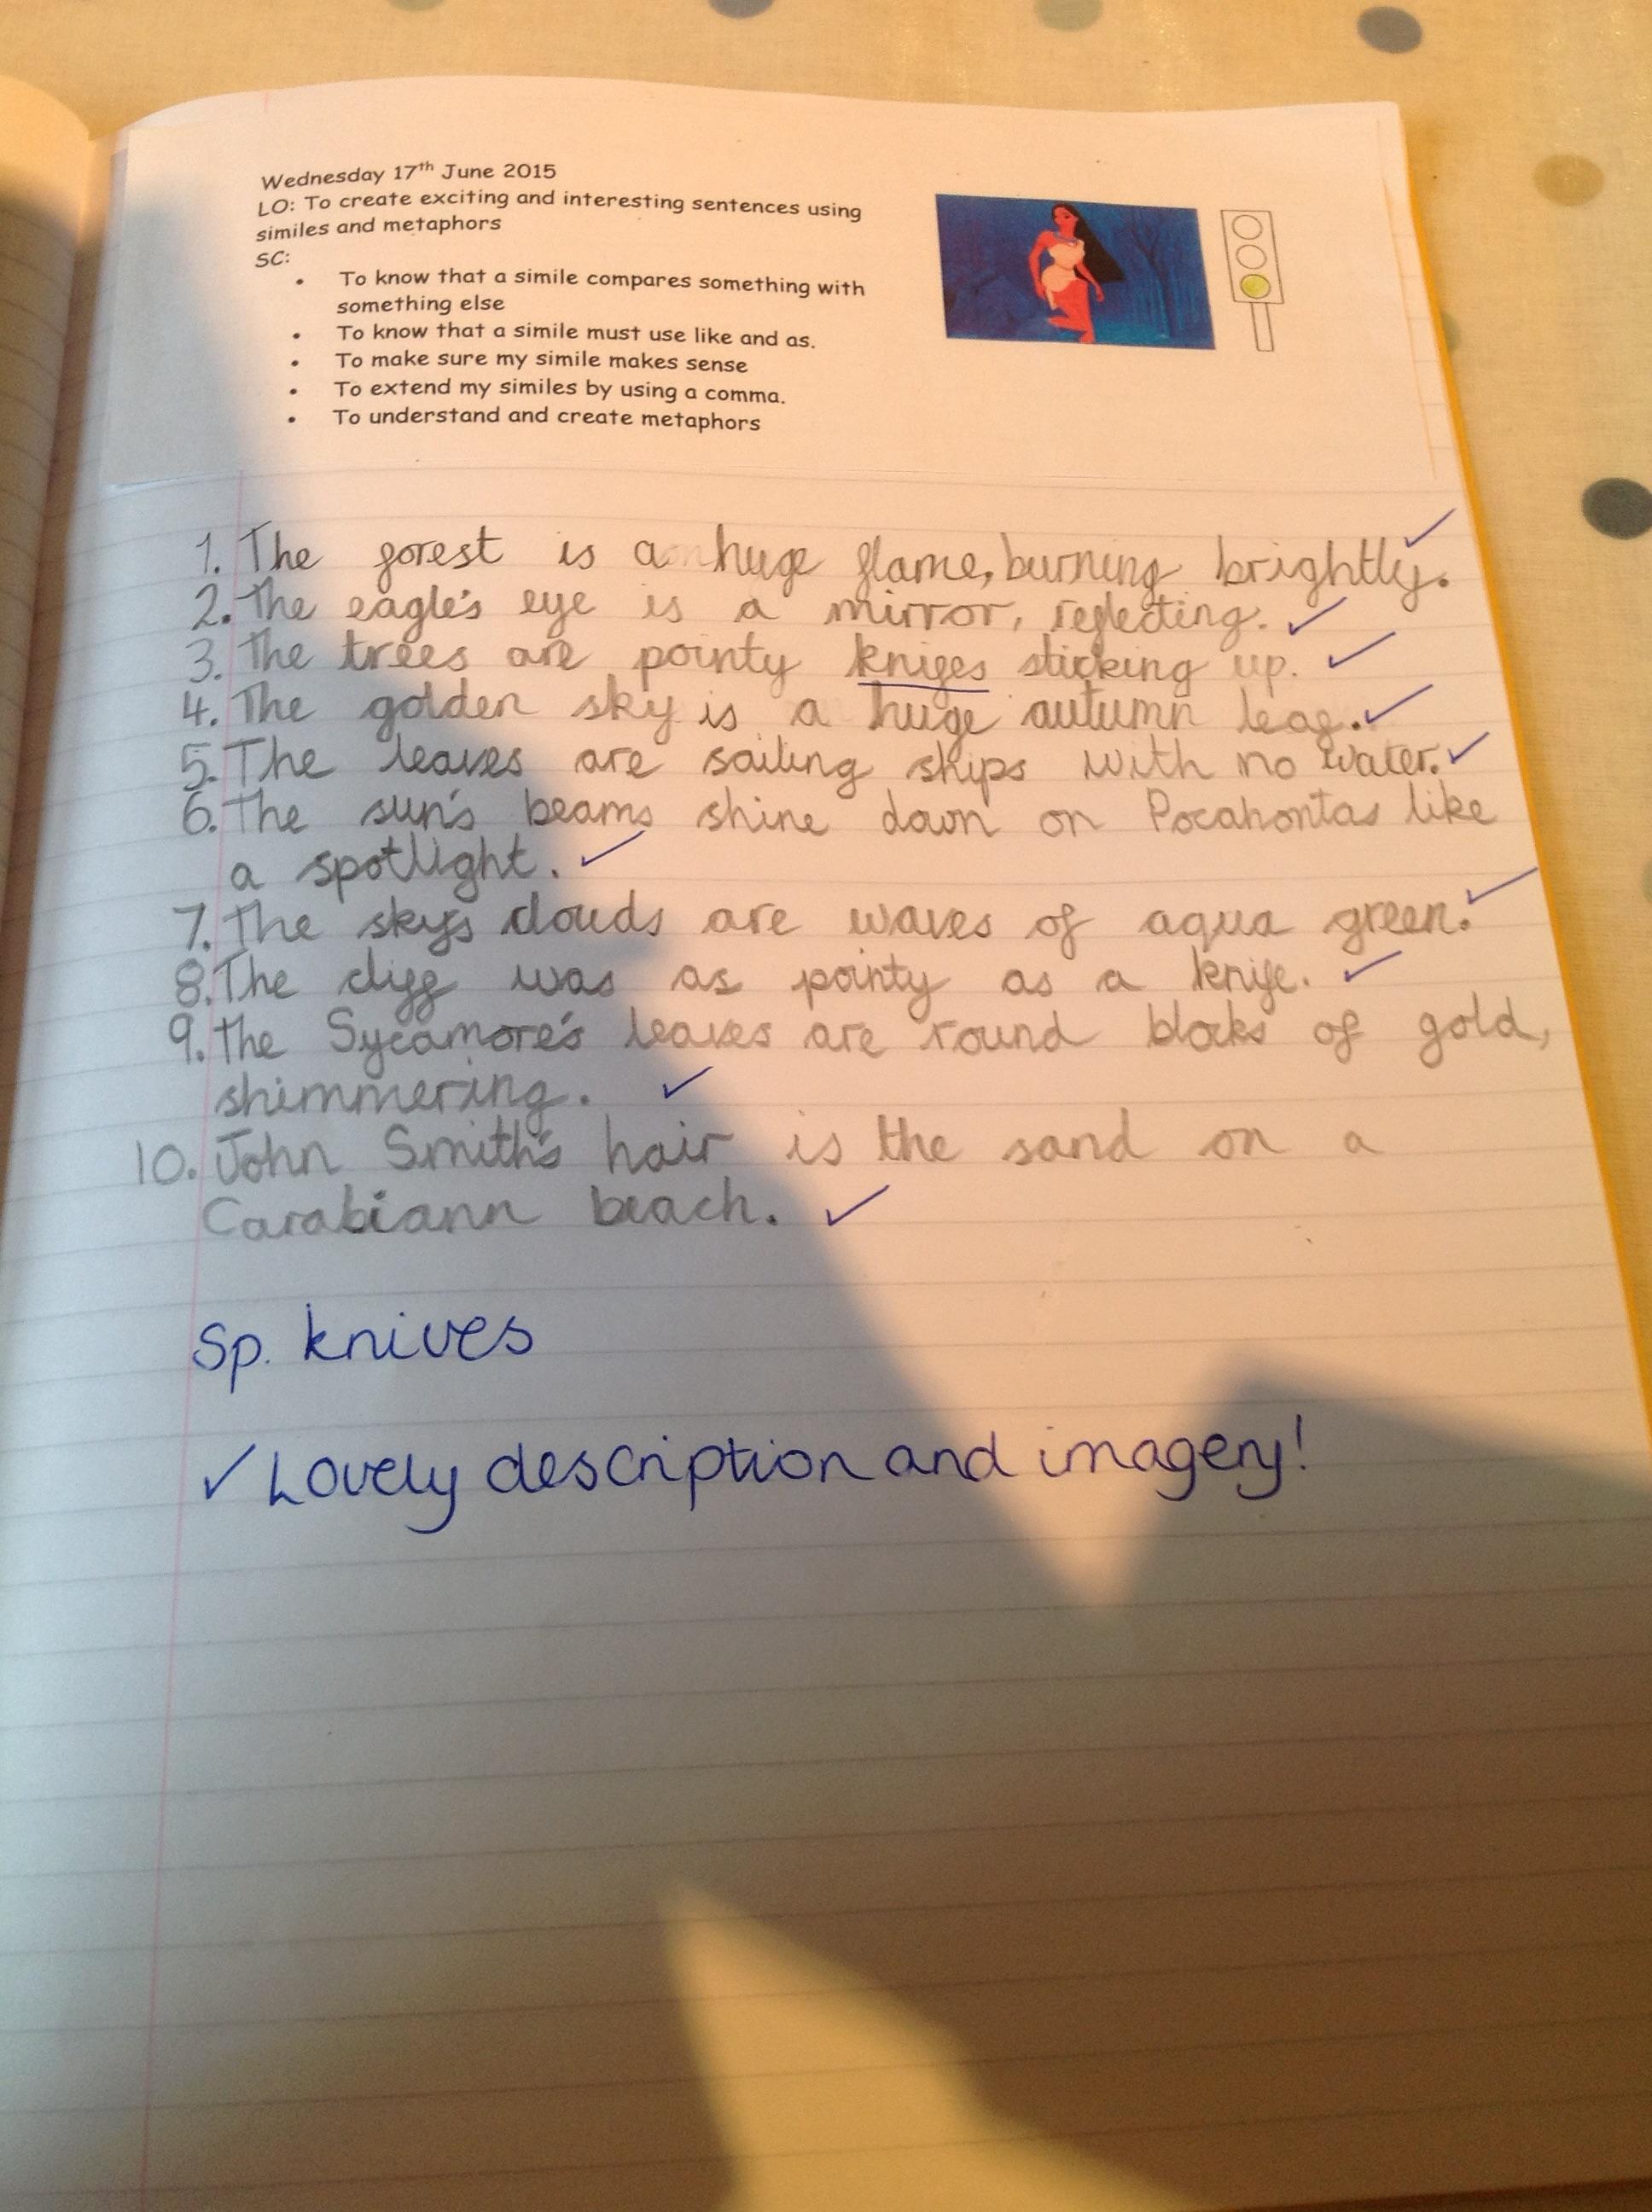 Wednesday 17th June 2015
LO: To create exciting and interesting sentences using
similes and metaphors
SC:
• To know that a simile compares something with
something else
• To know that a simile must use like and as.
• To make sure my simile makes sense
• To extend my similes by using a comma.
• To understand and create metaphors
1. The forest is a huge flame, burning brightly.
2. The eagle's eye is a mirror, reflecting.
3. The trees are pointy knifes sticking up.
4. The golden sky is a huge autumn leaf.
5. The leaves are sailing ships with no water.
6. The sun's beams shine down on Pocahontas like
a spotlight.
7. The skys clouds are waves of aqua green.
8. The cliff was as pointy as a knife.
9. The Sycamore's leaves are round blocks of gold,
shimmering.
10. John Smith's hair is the sand on a
Carabiann beach.
Sp. knives
✓ Lovely description and imagery!